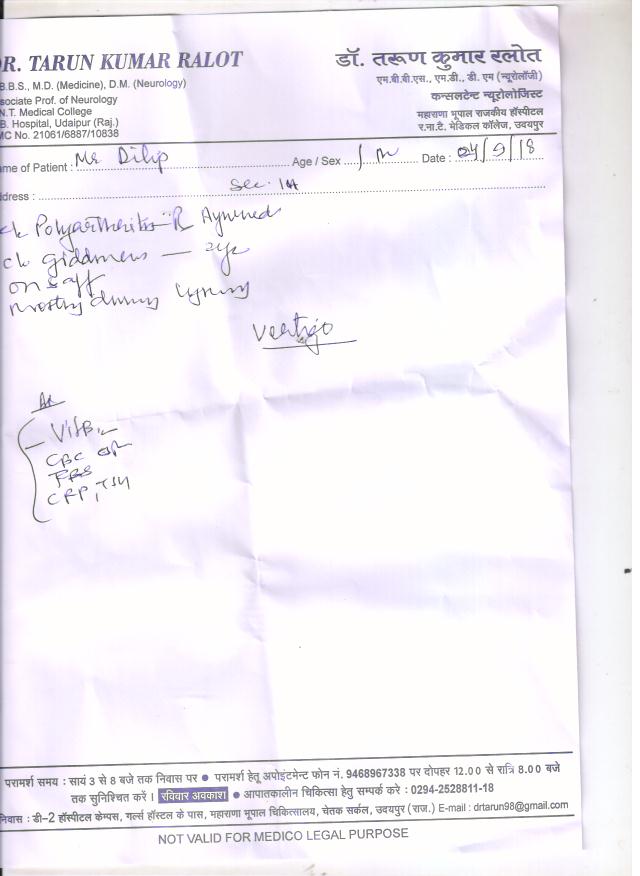 R. TARUN KUMAR RALOT
B.B.S., M.D. (Medicine), D.M. (Neurology)
sociate Prof. of Neurology
N.T. Medical College
B. Hospital, Udaipur (Raj.)
MC No. 21061/6887/10838
डॉ. तरूण कुमार रलोत
एम.बी.बी.एस., एम.डी., डी. एम (न्यूरोलॉजी)
कन्सलटेन्ट न्यूरोलोजिस्ट
महाराणा भूपाल राजकीय हॉस्पीटल
र.ना.टे. मेडिकल कॉलेज, उदयपुर
ame of Patient : Mr Dilip Age / Sex / m Date : 04/9/18
ddress : Sec. 14
Polyarthritis
c/o giddiness
mostly during
Vertigo
Vit B12
CBC
FBS
CRP, TSH
परामर्श समय : सायं 3 से 8 बजे तक निवास पर ● परामर्श हेतु अपोइंटमेन्ट फोन नं. 9468967338 पर दोपहर 12.00 से रात्रि 8.00 बजे
तक सुनिश्चित करें । रविवार अवकाश ● आपातकालीन चिकित्सा हेतु सम्पर्क करे : 0294-2528811-18
निवास : डी–2 हॉस्पीटल केम्पस, गर्ल्स हॉस्टल के पास, महाराणा भूपाल चिकित्सालय, चेतक सर्कल, उदयपुर (राज.) E-mail : drtarun98@gmail.com
NOT VALID FOR MEDICO LEGAL PURPOSE